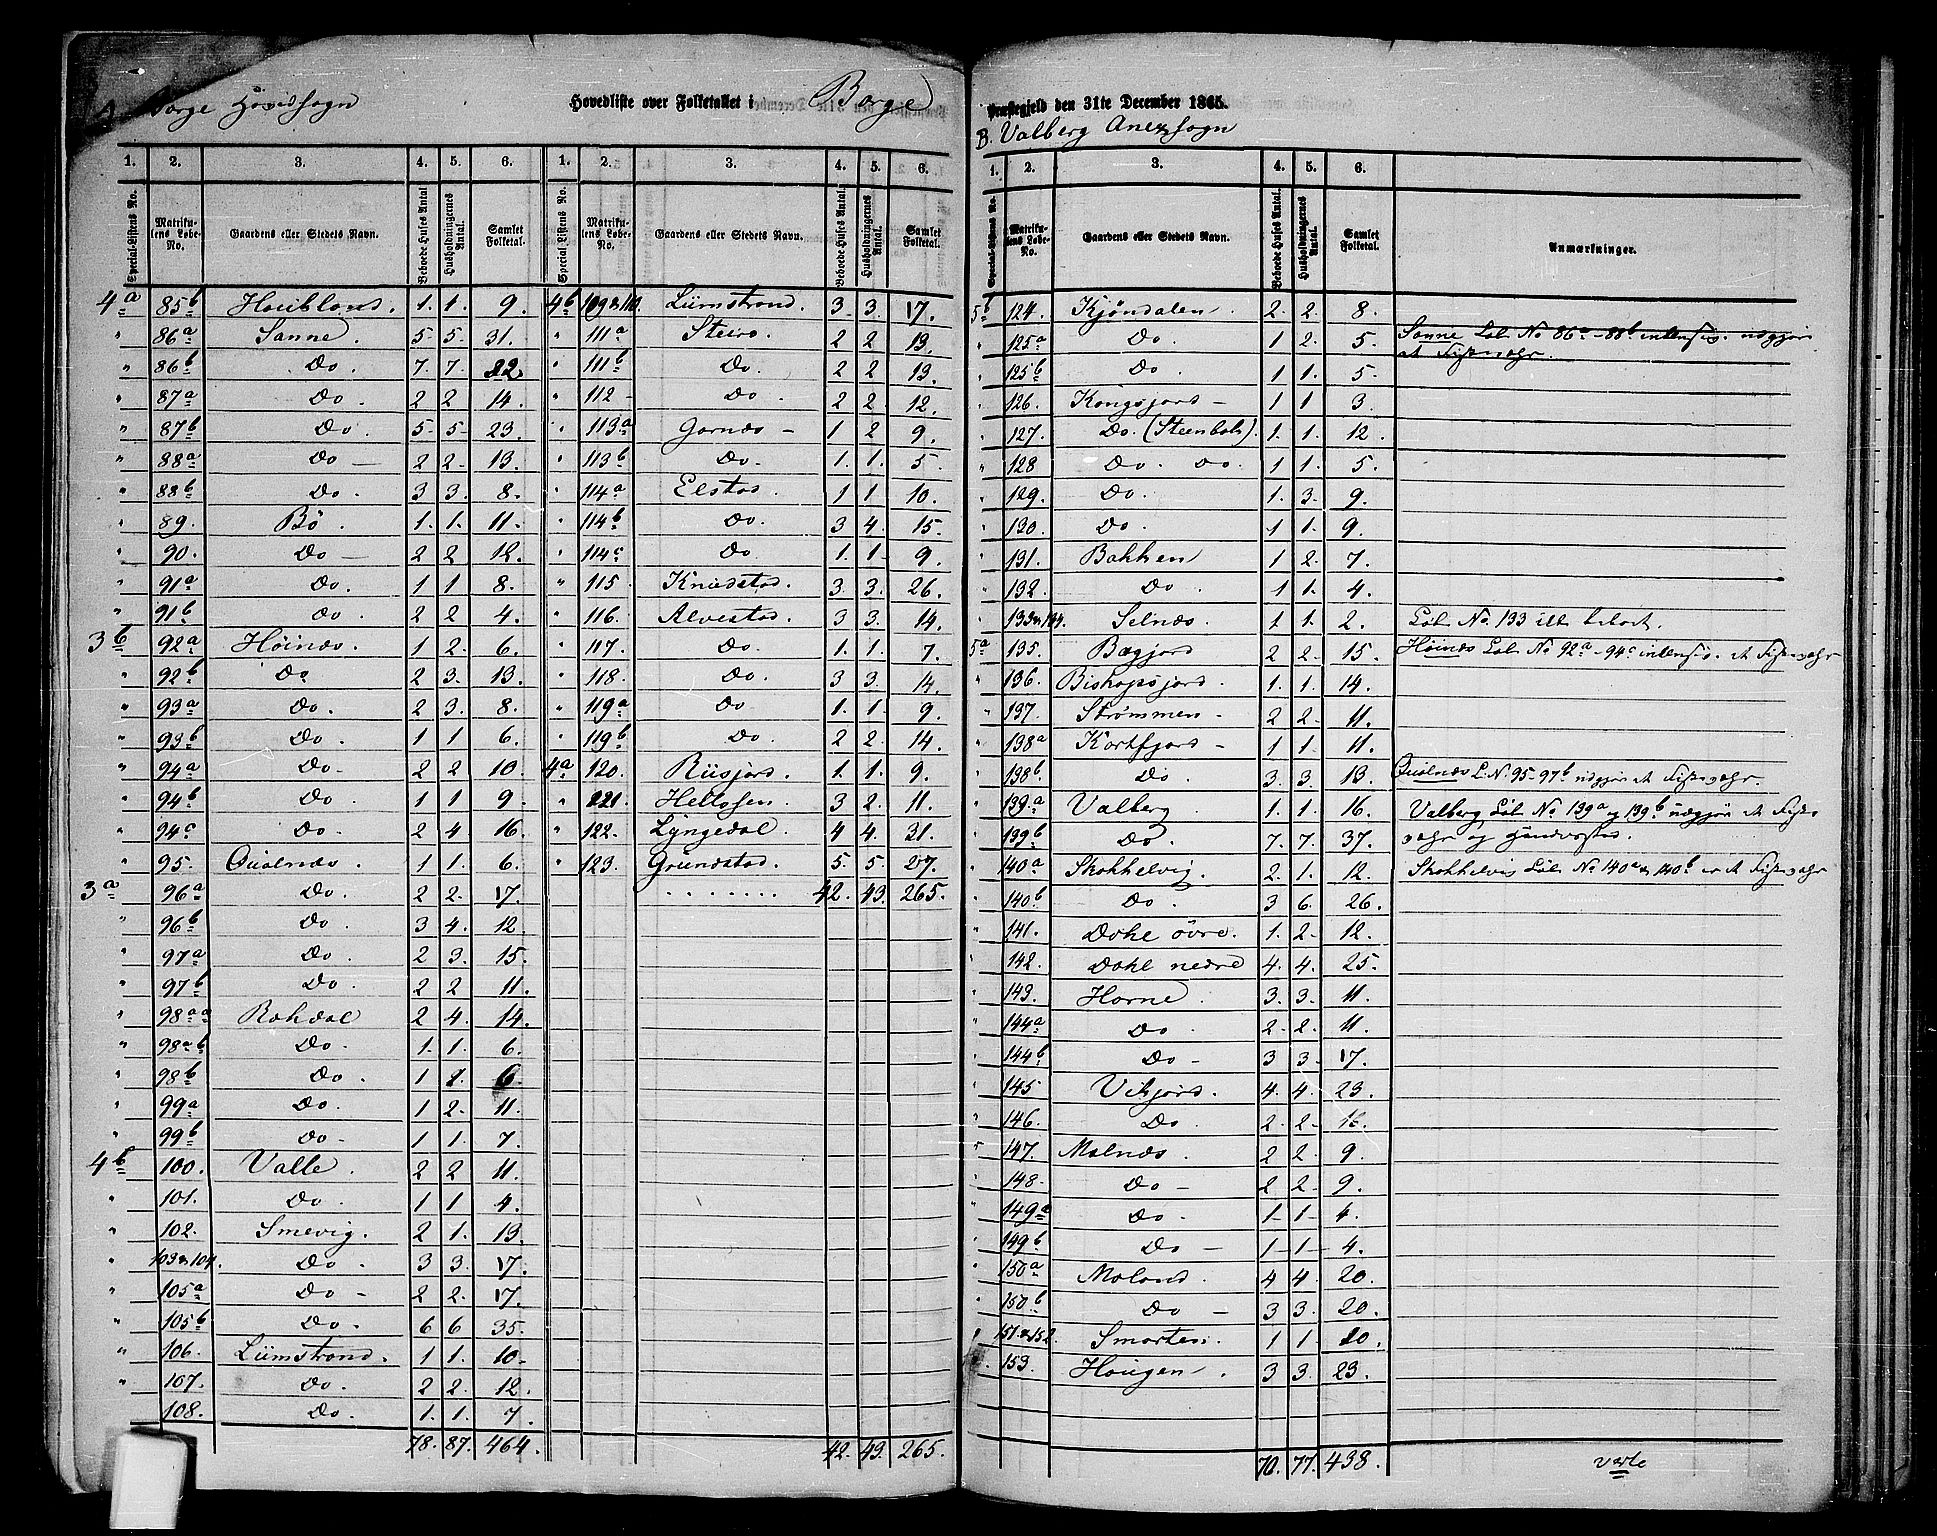 A. Borge Hovedsogn
Hovedliste over Folketallet i Borge Præstegjeld den 31te December 1865.
B. Valberg Anexsogn
1. 2. 3. 4. 5. 6. 1. 2. 3. 4. 5. 6.
Special-Listens No. Matrikulens Løbe-No. Gaardens eller Stedets Navn. Beboede Huses Antal Husholdningernes Antal. Samlet Folketal. Special Listens No. Matrikulens Løbe-No. Gaardens eller Stedets Navn. Beboede Huses Antal. Husholdningernes Antal. Samlet Folketal.
4a 85b Houkland. 1. 1. 9.
" 86a Sanne. 5 5. 31.
" 86b Do. 7. 7. 22.
" 87a Do. 2 2 14.
" 87b Do. 5 5. 23.
" 88a Do — 2 2. 13.
" 88b Do. 3 3. 8.
" 89. Bö. 1. 1. 11.
" 90. Do — 2 2 12.
" 91a Do. 1 1 8.
" 91b Do. 2 2 4.
3b 92a Höinæs. 1 2. 6.
" 92b Do 2 3. 13.
" 93a Do. 2 3. 8.
" 93b Do. 1 1 6.
" 94a Do. 2 2 10.
" 94b Do. 1 1 9.
" 94c Do. 2 4 16.
" 95. Qualnæs. 1 1. 6.
3a 96a Do. 2 2. 17.
" 96b Do. 3 4. 12
" 97a Do. 2 3. 15.
" 97b Do. 2 2 11.
" 98aa Rokdal 2 4. 14.
" 98ab Do. 1. 1. 6.
" 98b Do. 1 1. 6.
" 99a Do. 1 2. 11.
" 99b Do - 1 1. 7.
4b 100. Valle. 2 2 11.
" 101. Do. 1 1 4.
" 102. Smevig. 2 1. 13.
" 103 & 104. Do. 3 3. 17.
" 105a Do - 2 2. 17.
" 105b Do. 6 6 35.
" 106. Limstrand. 1 1. 10.
" 107. Do. 2 2. 12.
" 108. Do. 1. 1. 7.
78. 87. 464.
4b 109 & 110. Limstrand. 3. 3. 17.
" 111a Steiro. 2 2 13.
" 111b Do. 2 2 13.
" 112 Do. 2 2 12.
" 113a Garnæs - 1 2 9.
" 113b Do. 1. 1. 5.
" 114a Elstad. 1 1 10.
" 114b Do. 3 4. 15.
" 114c Do. 1. 1 9.
" 115 Knudstad. 3. 3. 26.
" 116. Alvestad. 3 3. 14.
" 117. Do. 1. 1. 7.
" 118. Do. 3 3. 14.
" 119a Do 1. 1. 9.
" 119b Do. 2 2. 14.
4a 120. Riisjord. 1. 1. 9.
" 121. Heltosen. 3 2. 11.
" 122. Lyngedal. 4 4. 31.
" 123. Grundstad. 5. 5. 27.
42. 43. 265.
42. 43. 265.
1. 2. 3. 4. 5. 6.
Special-Listens No. Matrikulens Løbe-No. Gaardens eller Stedets Navn. Beboede Huses Antal. Husholdningernes Antal. Samlet Folketal. Anmærkninger.
5b 124. Kjöndalen. 2. 2. 8.
" 125a Do. 1 2. 5. Sanne Löb. No 86a - 88b udgjör
" 125b Do. 1 1. 5. et Fiskevær.
" 126. Kongsjord - 1 1 3.
" 127. Do. (Steenbak). 1. 1. 12.
" 128 Do. Do. 1 1. 5.
" 129. Do. 1. 3. 9.
" 130. Do. 1 1. 9.
" 131. Bakken 1 2. 7.
" 132. Do. 1 1. 4.
" 133 & 134. Selnæs. 1 1. 2. Löb No. 133 ubeboet.
5a 135. Bægjord 2 2. 15. Höinæs Löb. No 92a - 94c et Fiskevær
" 136. Bishopsjord. 1. 1. 14.
" 137. Strömmen. 2 2. 11.
" 138a Kortfjord - 1 1. 11.
" 138b. Do. 3. 3. 13. Qualnæs L. N. 95-97b udgjör et Fiskevær.
" 139a Valberg. 1 1. 16. Valberg Löb. No 139a og 139b udgjör et Fiske
" 139b Do. 7. 7. 37. vær og
" 140a Skokkelvig. 2. 1. 12. Skokkelvig Löb. No 140a & 140b er et Fiskevær
" 140b Do. 3 6. 26.
" 141. Dahl övre. 1. 2. 12.
" 142. Dahl nedre 4. 4. 25.
" 143. Horne. 3. 3. 11.
" 144a Do. 2. 2. 11.
" 144b Do - 3 3. 17.
" 145 Vikjord. 4. 4. 23.
" 146. Do. 2. 2 16.
" 147. Malnæs. 2 2. 9.
" 148. Do - 2 2. 9.
" 149a Do. 1 1. 4.
" 149b Do - 1 1 4.
" 150a Moland. 4 4. 20.
" 150b Do - 3 3. 20.
151 & 152. Smorten. 1 1. 20.
153. Hougen. 3 3. 23.
70. 77. 438.
verte